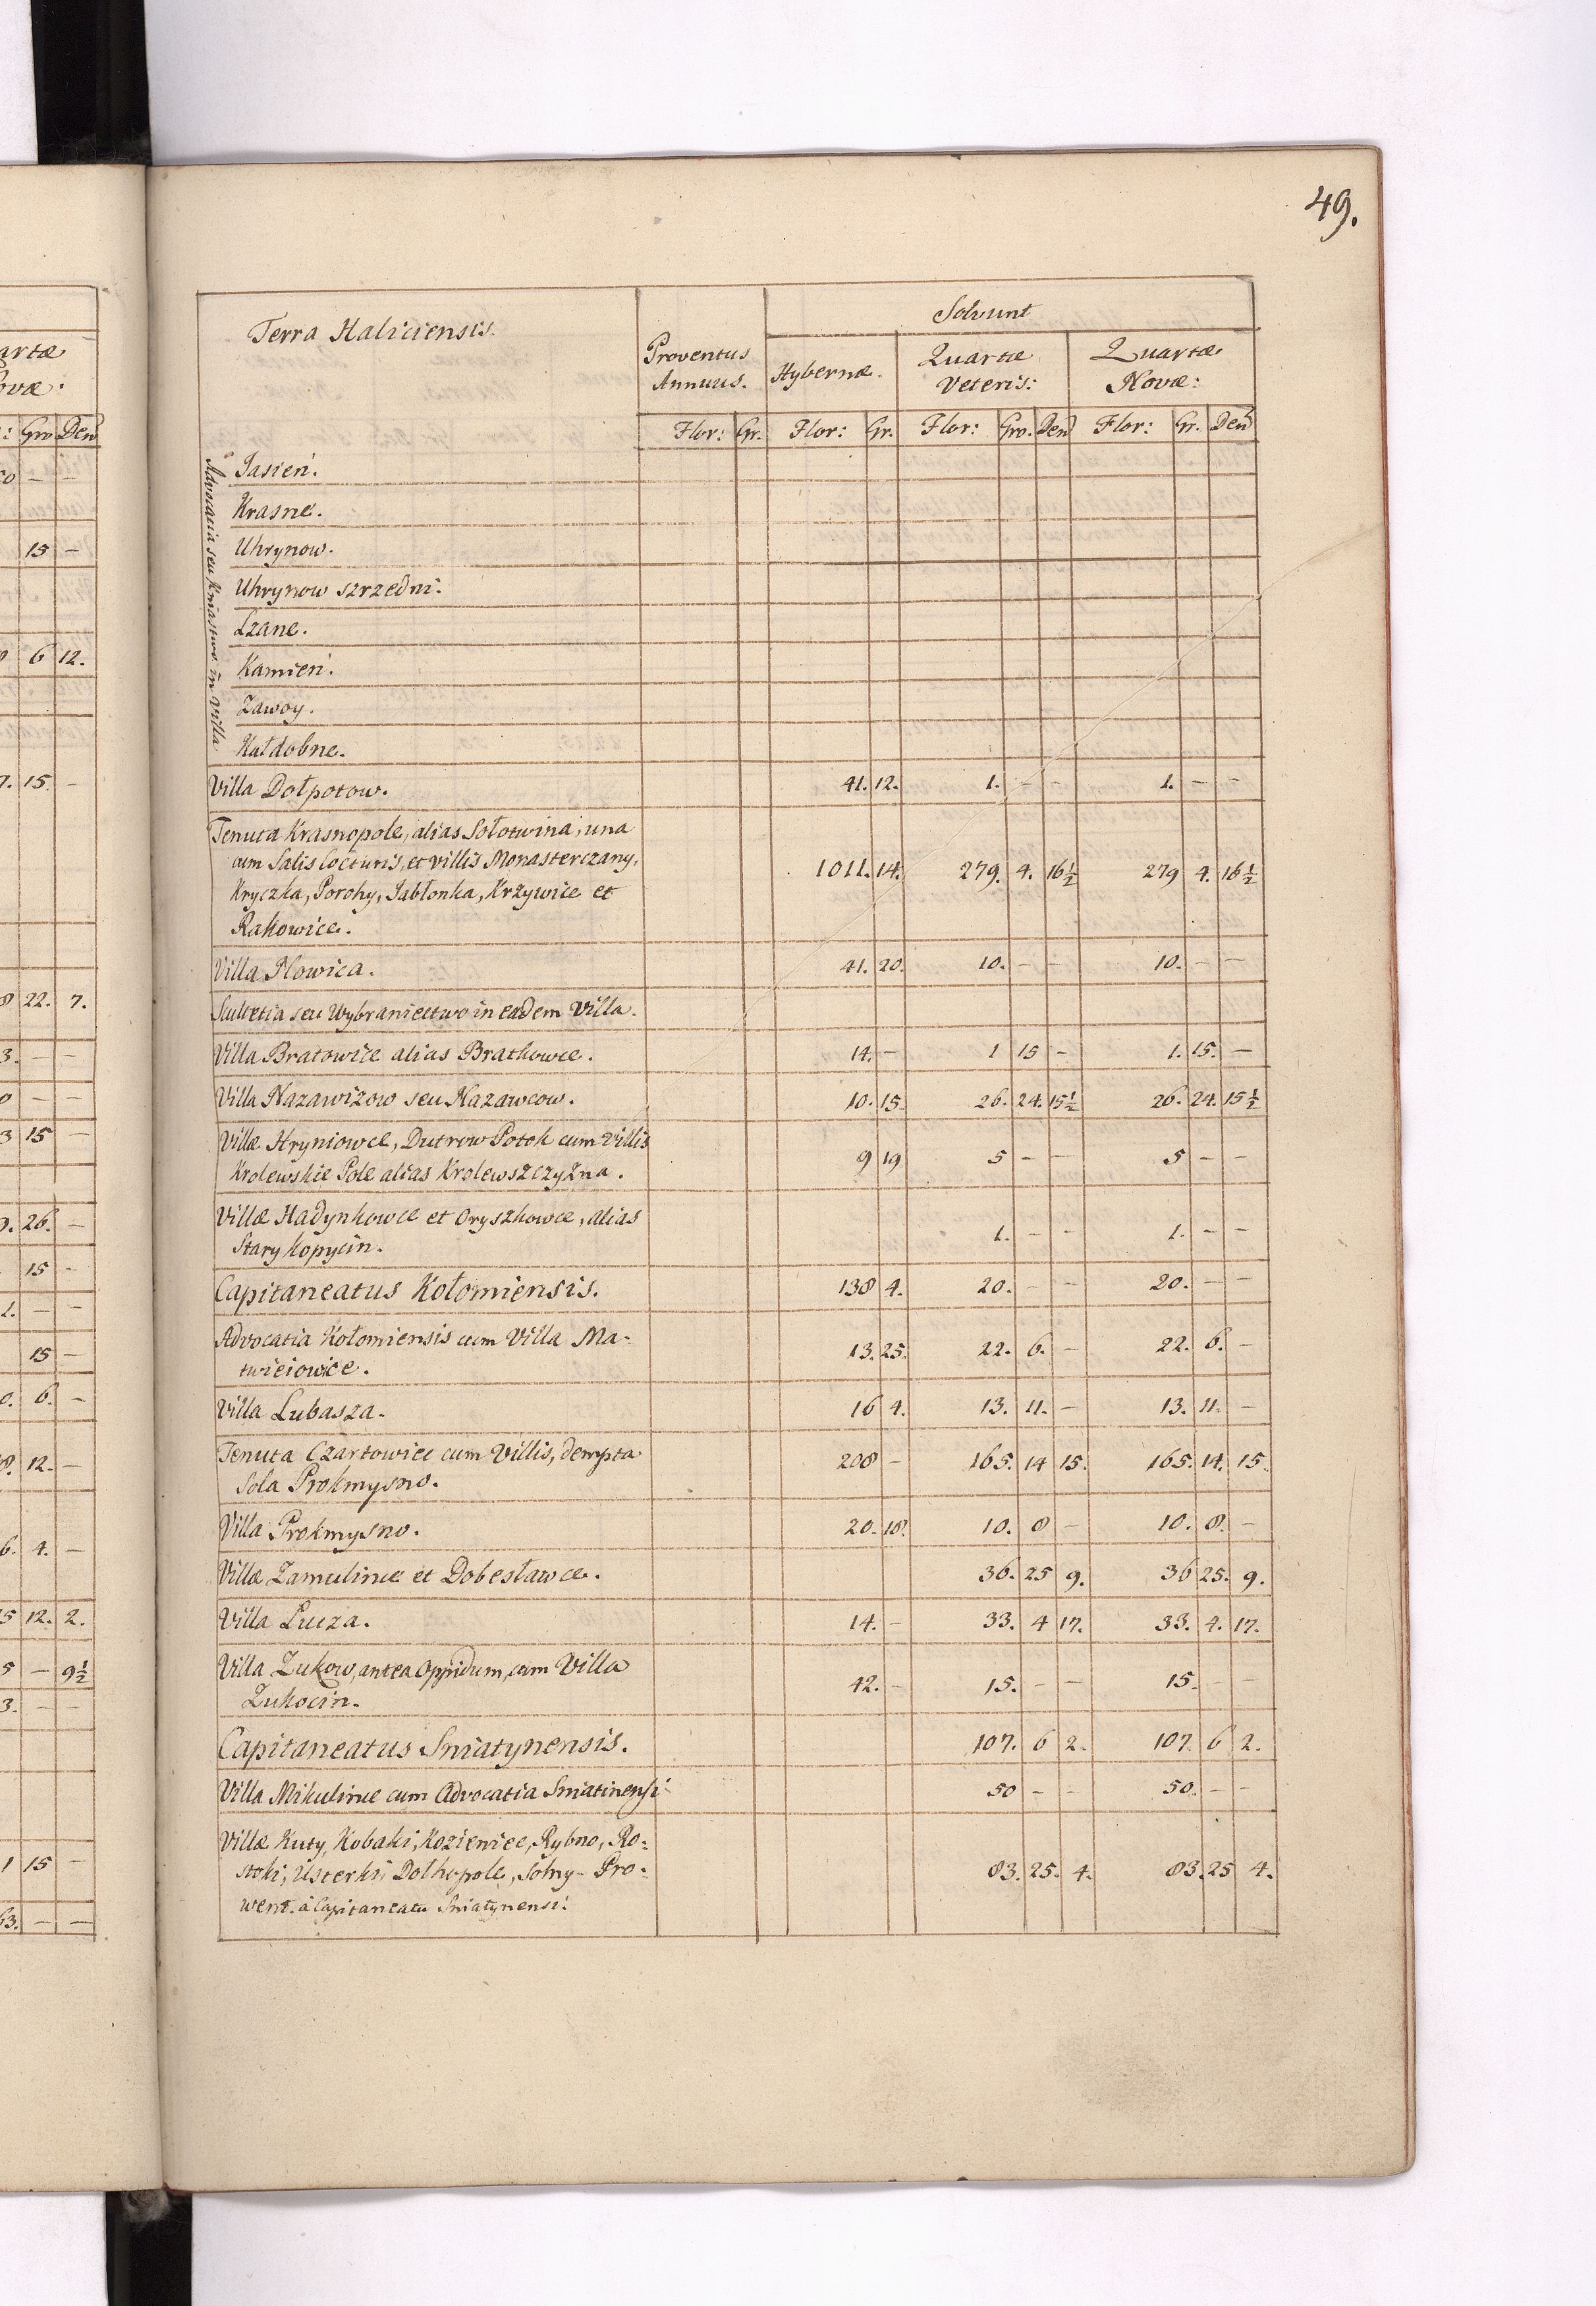 artæ
ovæ:
: Gro Den
0 – –
15 –
0 6 12.
7. 15. –
8 22. 7.
3. – –
0 – –
3 15 –
0. 26. –
15 –
1. – –
15 –
0. 6. –
8. 12. –
6. 4. –
5 12. 2.
5 – 9½
3. – –
1 15 –
63. – –
49.
Terra Haliciensis. Proventus Annuus. Solvunt
Hybernæ. Quartæ Veteris: Quartæ Novæ:
Flor: Gr. Flor: Gr. Flor: Gro. Den Flor: Gr. Den
Advocatia seu Kniastwo in Villa
Jasień.
Krasne.
Uhrynow.
Uhrynow szrzedni.
Lzane.
Kamień.
Zawoy.
Kałdobne.
Villa Dołpotow. 41. 12. 1. – – 1. – –
Tenuta Krasnopole, alias Sołotwina, una
cum Salis Cocturis, et villis Monasterczany,
Kryczka, Porohy, Jabłonka, Krzywice et 1011. 14. 279. 4. 16½ 279 4. 16½
Rakowice.
Villa Plowica. 41. 20. 10. – – 10. – –
Scultetia seu Wybraniectwo in eadem Villa.
Villa Bratowice alias Bratkowce. 14. – 1 15 – 1. 15. –
Villa Nazawizow seu Nazawcow. 10. 15. 26. 24. 15½ 26. 24. 15½
Villæ Hryniowce, Dutrow Potok cum Villis
Krolewskie Pole alias Krolewszczyzna. 9 19 5 – – 5 – –
Villæ Hadynkowce et Oryszkowce, alias
Stary Kopycin. 1. – – 1. – –
Capitaneatus Kołomiensis. 138 4. 20. – – 20. – –
Advocatia Kołomiensis cum Villa Ma-
twieiowce. 13. 25. 22. 6. – 22. 6. –
Villa Lubasza. 16 4. 13. 11. – 13. 11. –
Tenuta Czartowice cum Villis, dempta
sola Prokmysno. 208 – 165. 14 15. 165. 14. 15.
Villa Prokmysno. 20. 18. 10. 8 – 10. 8. –
Villæ Zamulince et Dobesławce. 36. 25 9. 36 25. 9.
Villa Lucza. 14. – 33. 4 17. 33. 4. 17.
Villa Zukow, antea Oppidum, cum Villa
Zukocin. 42. – 15. – – 15. – –
Capitaneatus Sniatynensis. 107. 6 2. 107. 6 2.
Villa Mikulince cum Advocatia Sniatinensi 50 – – 50. – –
Villæ Kuty, Kobaki, Kozieniec, Rybno, Ro-
stoki, Usterki, Dolhopole, Solny-Pro- 83. 25. 4. 83. 25 4.
went. à Capitaneatu Sniatynensi.